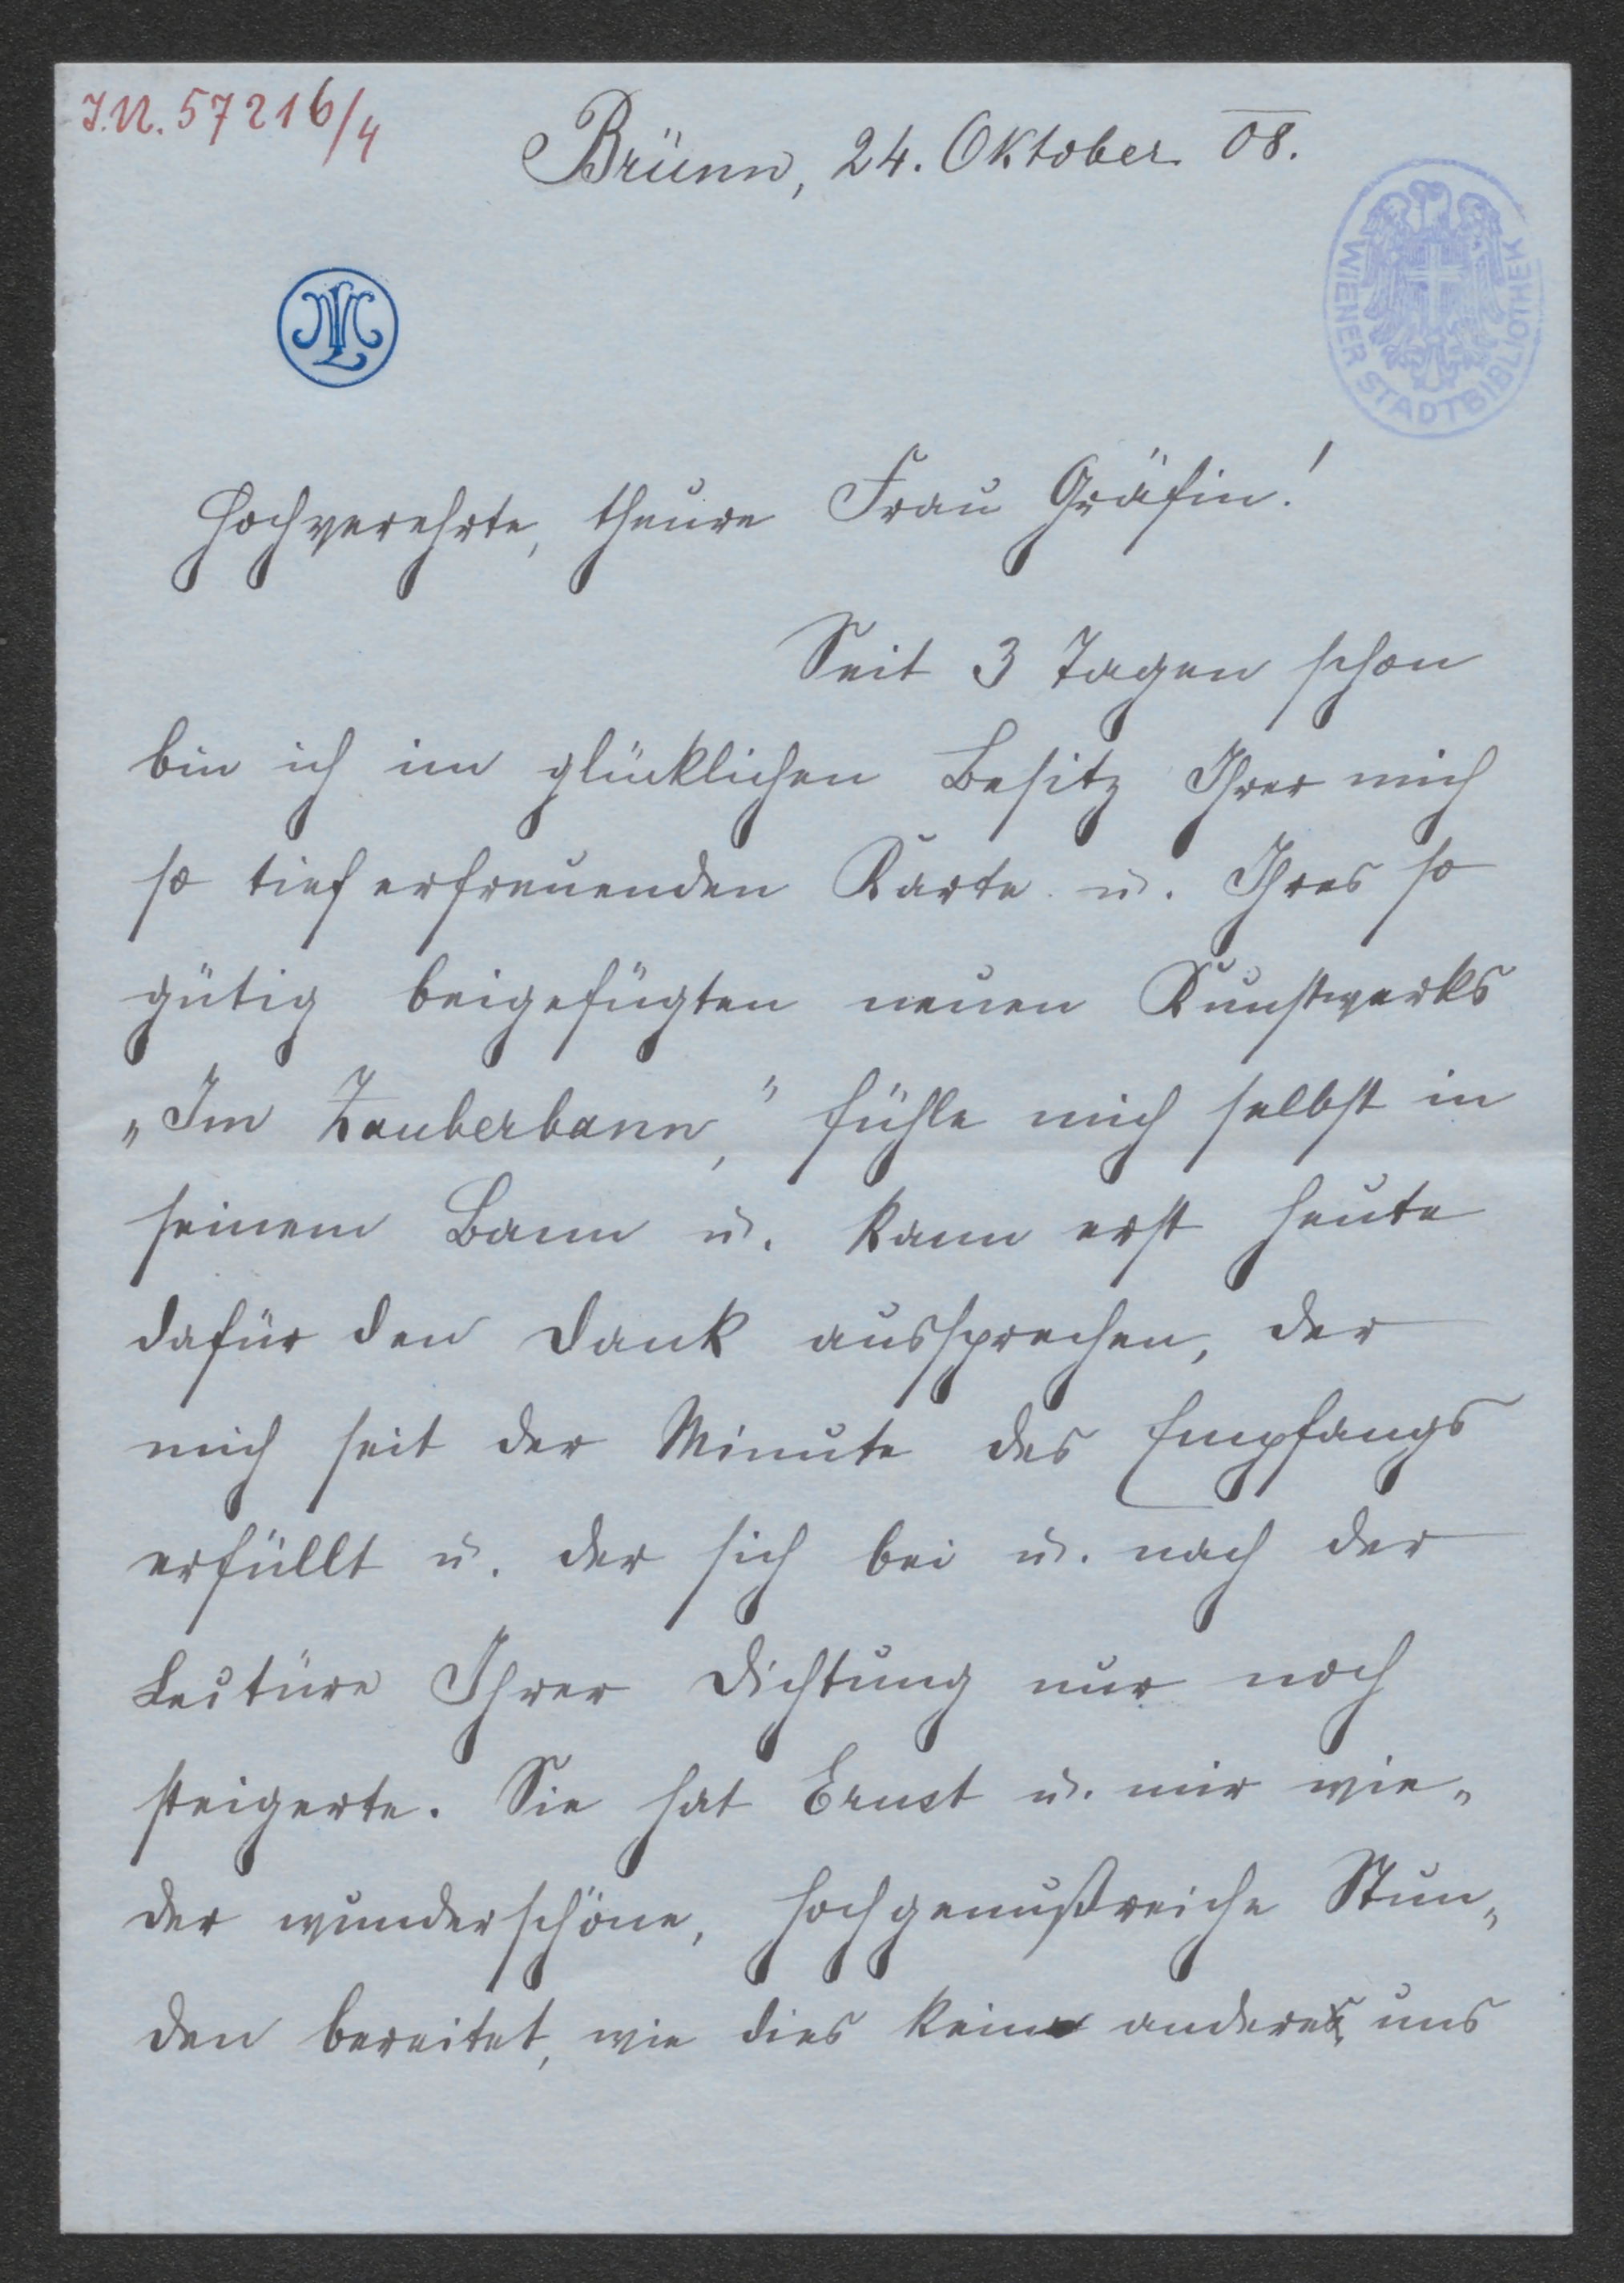 J.N. 57216/4
Brünn, 24. Oktober 08.
WIENER STADTBIBLIOTHEK
Hochverehrte, theure Frau Gräfin!
Seit 3 Tagen schon
bin ich im glücklichen Besitz Ihrer mich
so tief erfreuenden Karte u. Ihres so
gütig beigefügten neuen Kunstwerks
„Im Zauberbann," fühle mich selbst in
seinem Bann u. kann erst heute
dafür den Dank aussprechen, der
mich seit der Minute des Empfangs
erfüllt u. der sich bei u. nach der
Lectüre Ihrer Dichtung nur noch
steigerte. Sie hat Ernst u. mir wie„
der wunderschöne, hochgenußreiche Stun„
den bereitet, wie dies keine andere uns